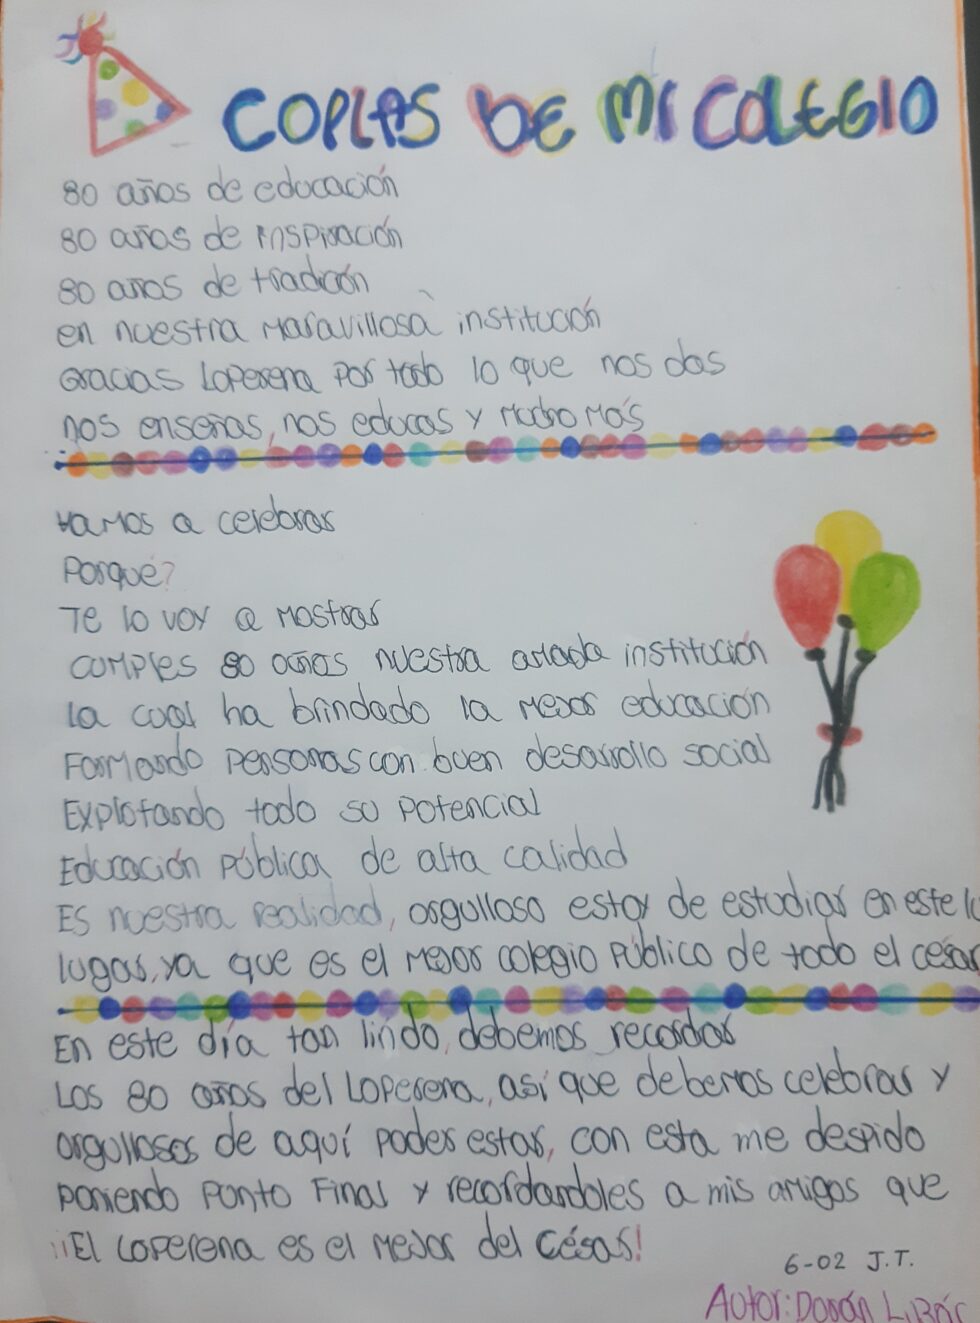 COPLAS DE MI COLEGIO
80 años de educación
80 años de inspiración
80 años de tradición
en nuestra maravillosa institución
Gracias Loperena por todo lo que nos das
nos enseñas, nos educas y mucho más
Vamos a celebrar
Porqué?
Te lo voy a mostrar
cumples 80 años nuestra amada institución
La cual ha brindado la mejor educación
Formando personas con buen desarrollo social
Explotando todo su potencial
Educación pública de alta calidad
Es nuestra realidad, orgulloso estoy de estudiar en este
lugar, ya que es el mejor colegio público de todo el cesar
En este día tan lindo, debemos recordar
Los 80 años del Loperena, así que debemos celebrar y
orgullosos de aquí poder estar, con esta me despido
poniendo punto final y recordandoles a mis amigos que
¡¡El Loperena es el mejor del César!
6-02 J.T.
Autor: